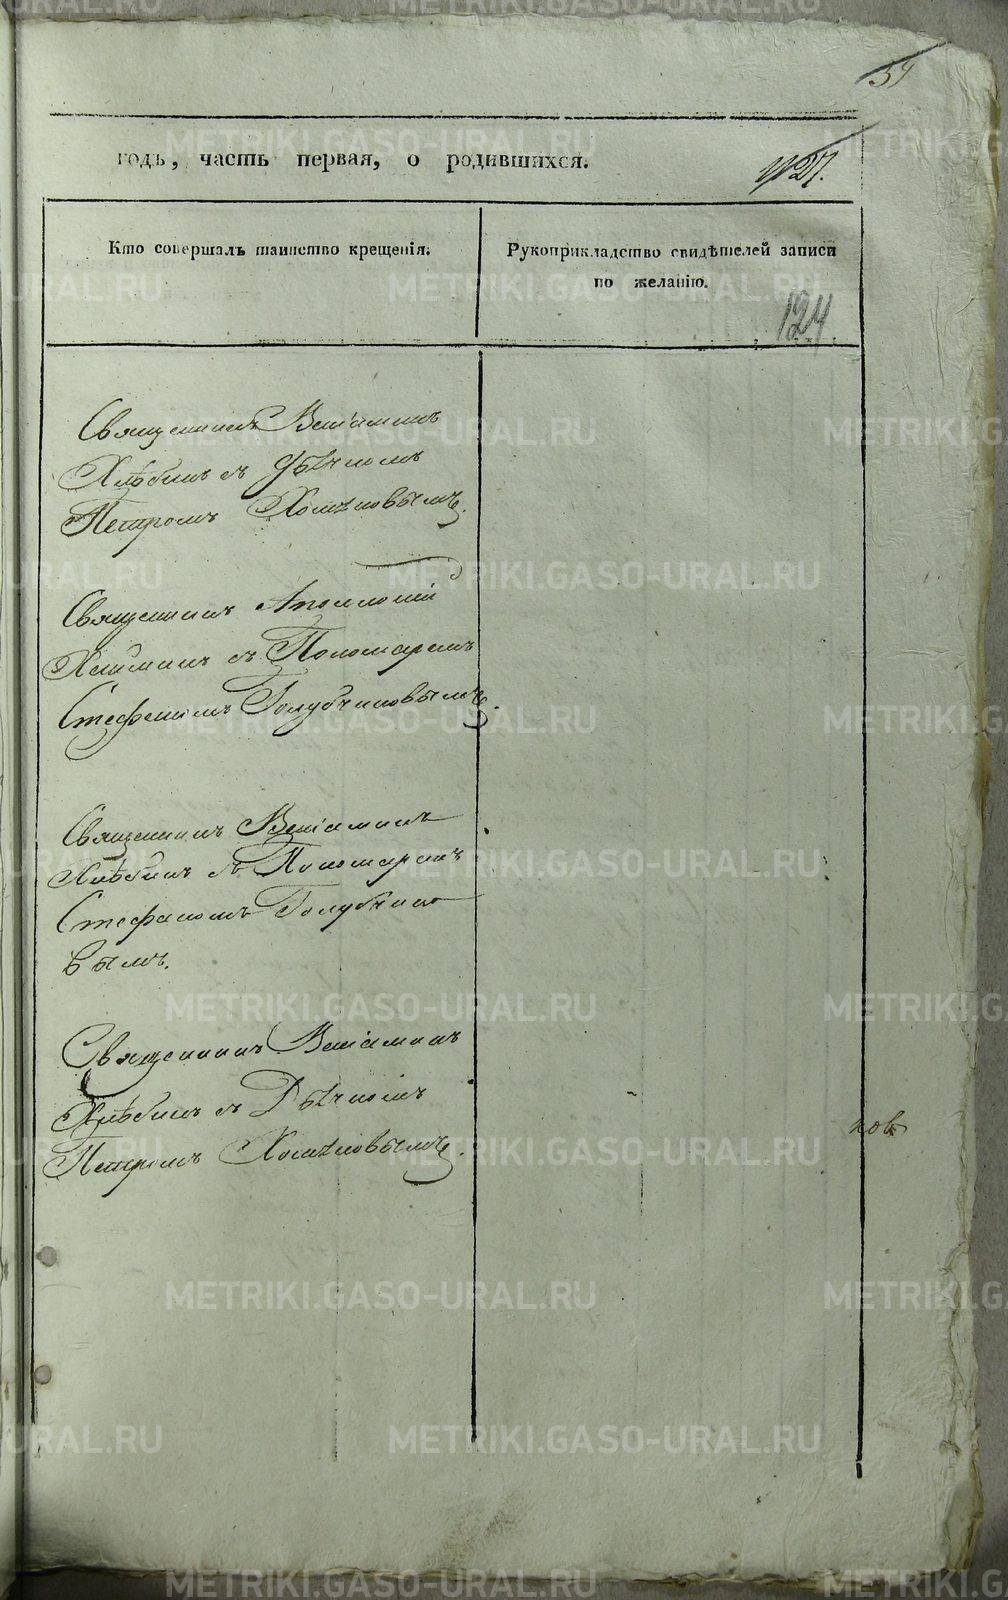 34
годъ, часть первая, о родившихся.
Кто совершалъ таинство крещенія.
Рукоприкладство свидѣтелей записи
по желанію.
124
Священникъ Веніаминъ
Хлѣбинъ съ Дьячкомъ
Петромъ
Священникъ Аполлоній
съ Пономаремъ
Стефаномъ Голубчиковымъ.
Священникъ Веніаминъ
Хлѣбинъ съ Пономаремъ
Стефаномъ Голубчико
вымъ.
Священникъ Веніаминъ
Хлѣбинъ съ Дьячкомъ
Петромъ
METRIKI.GASO-URAL.RU